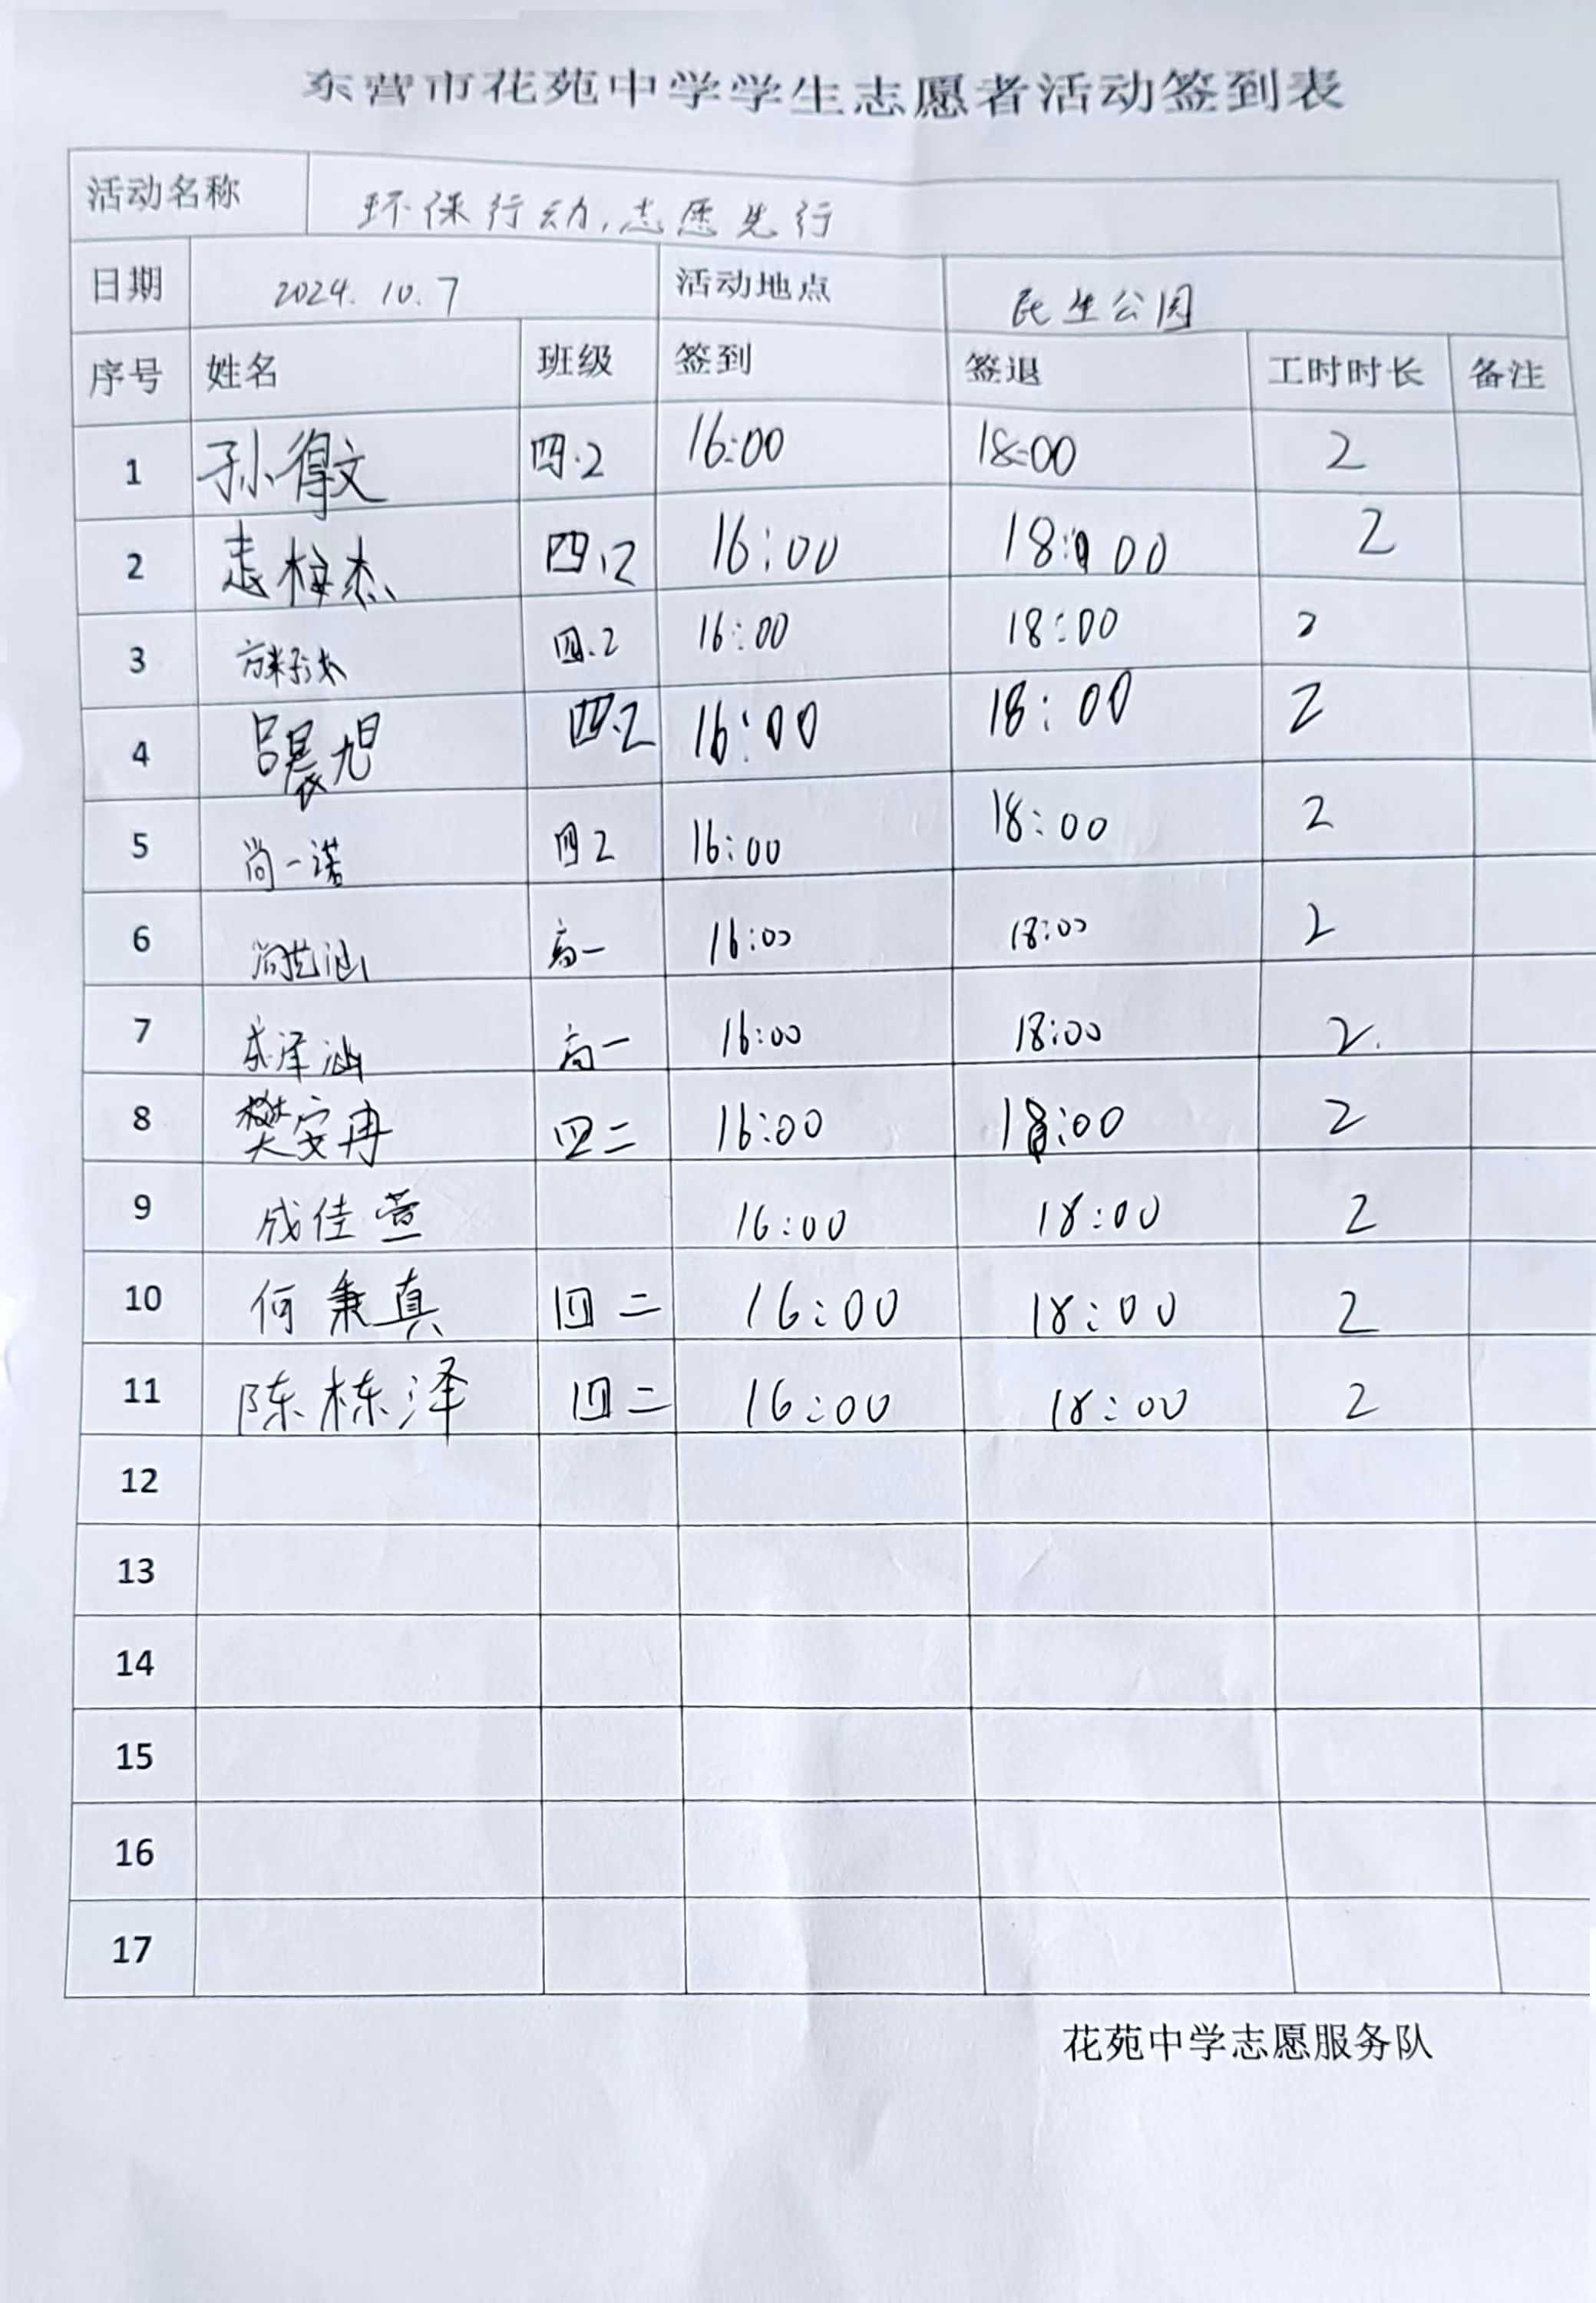 东营市花苑中学学生志愿者活动签到表
活动名称 环保行动,志愿先行
日期 2024.10.7 活动地点 民生公园
序号 姓名 班级 签到 签退 工时时长 备注
1 孙得文 四.2 16:00 18:00 2
2 杰 四.2 16:00 18:00 2
3 四.2 16:00 18:00 2
4 吕晨旭 四.2 16:00 18:00 2
5 尚一诺 四2 16:00 18:00 2
6 高一 16:00 18:00 2
7 泽涵 高一 16:00 18:00 2.
8 樊安冉 四二 16:00 18:00 2
9 成佳萱 16:00 18:00 2
10 何秉真 四二 16:00 18:00 2
11 陈栋泽 四二 16:00 18:00 2
12
13
14
15
16
17
花苑中学志愿服务队